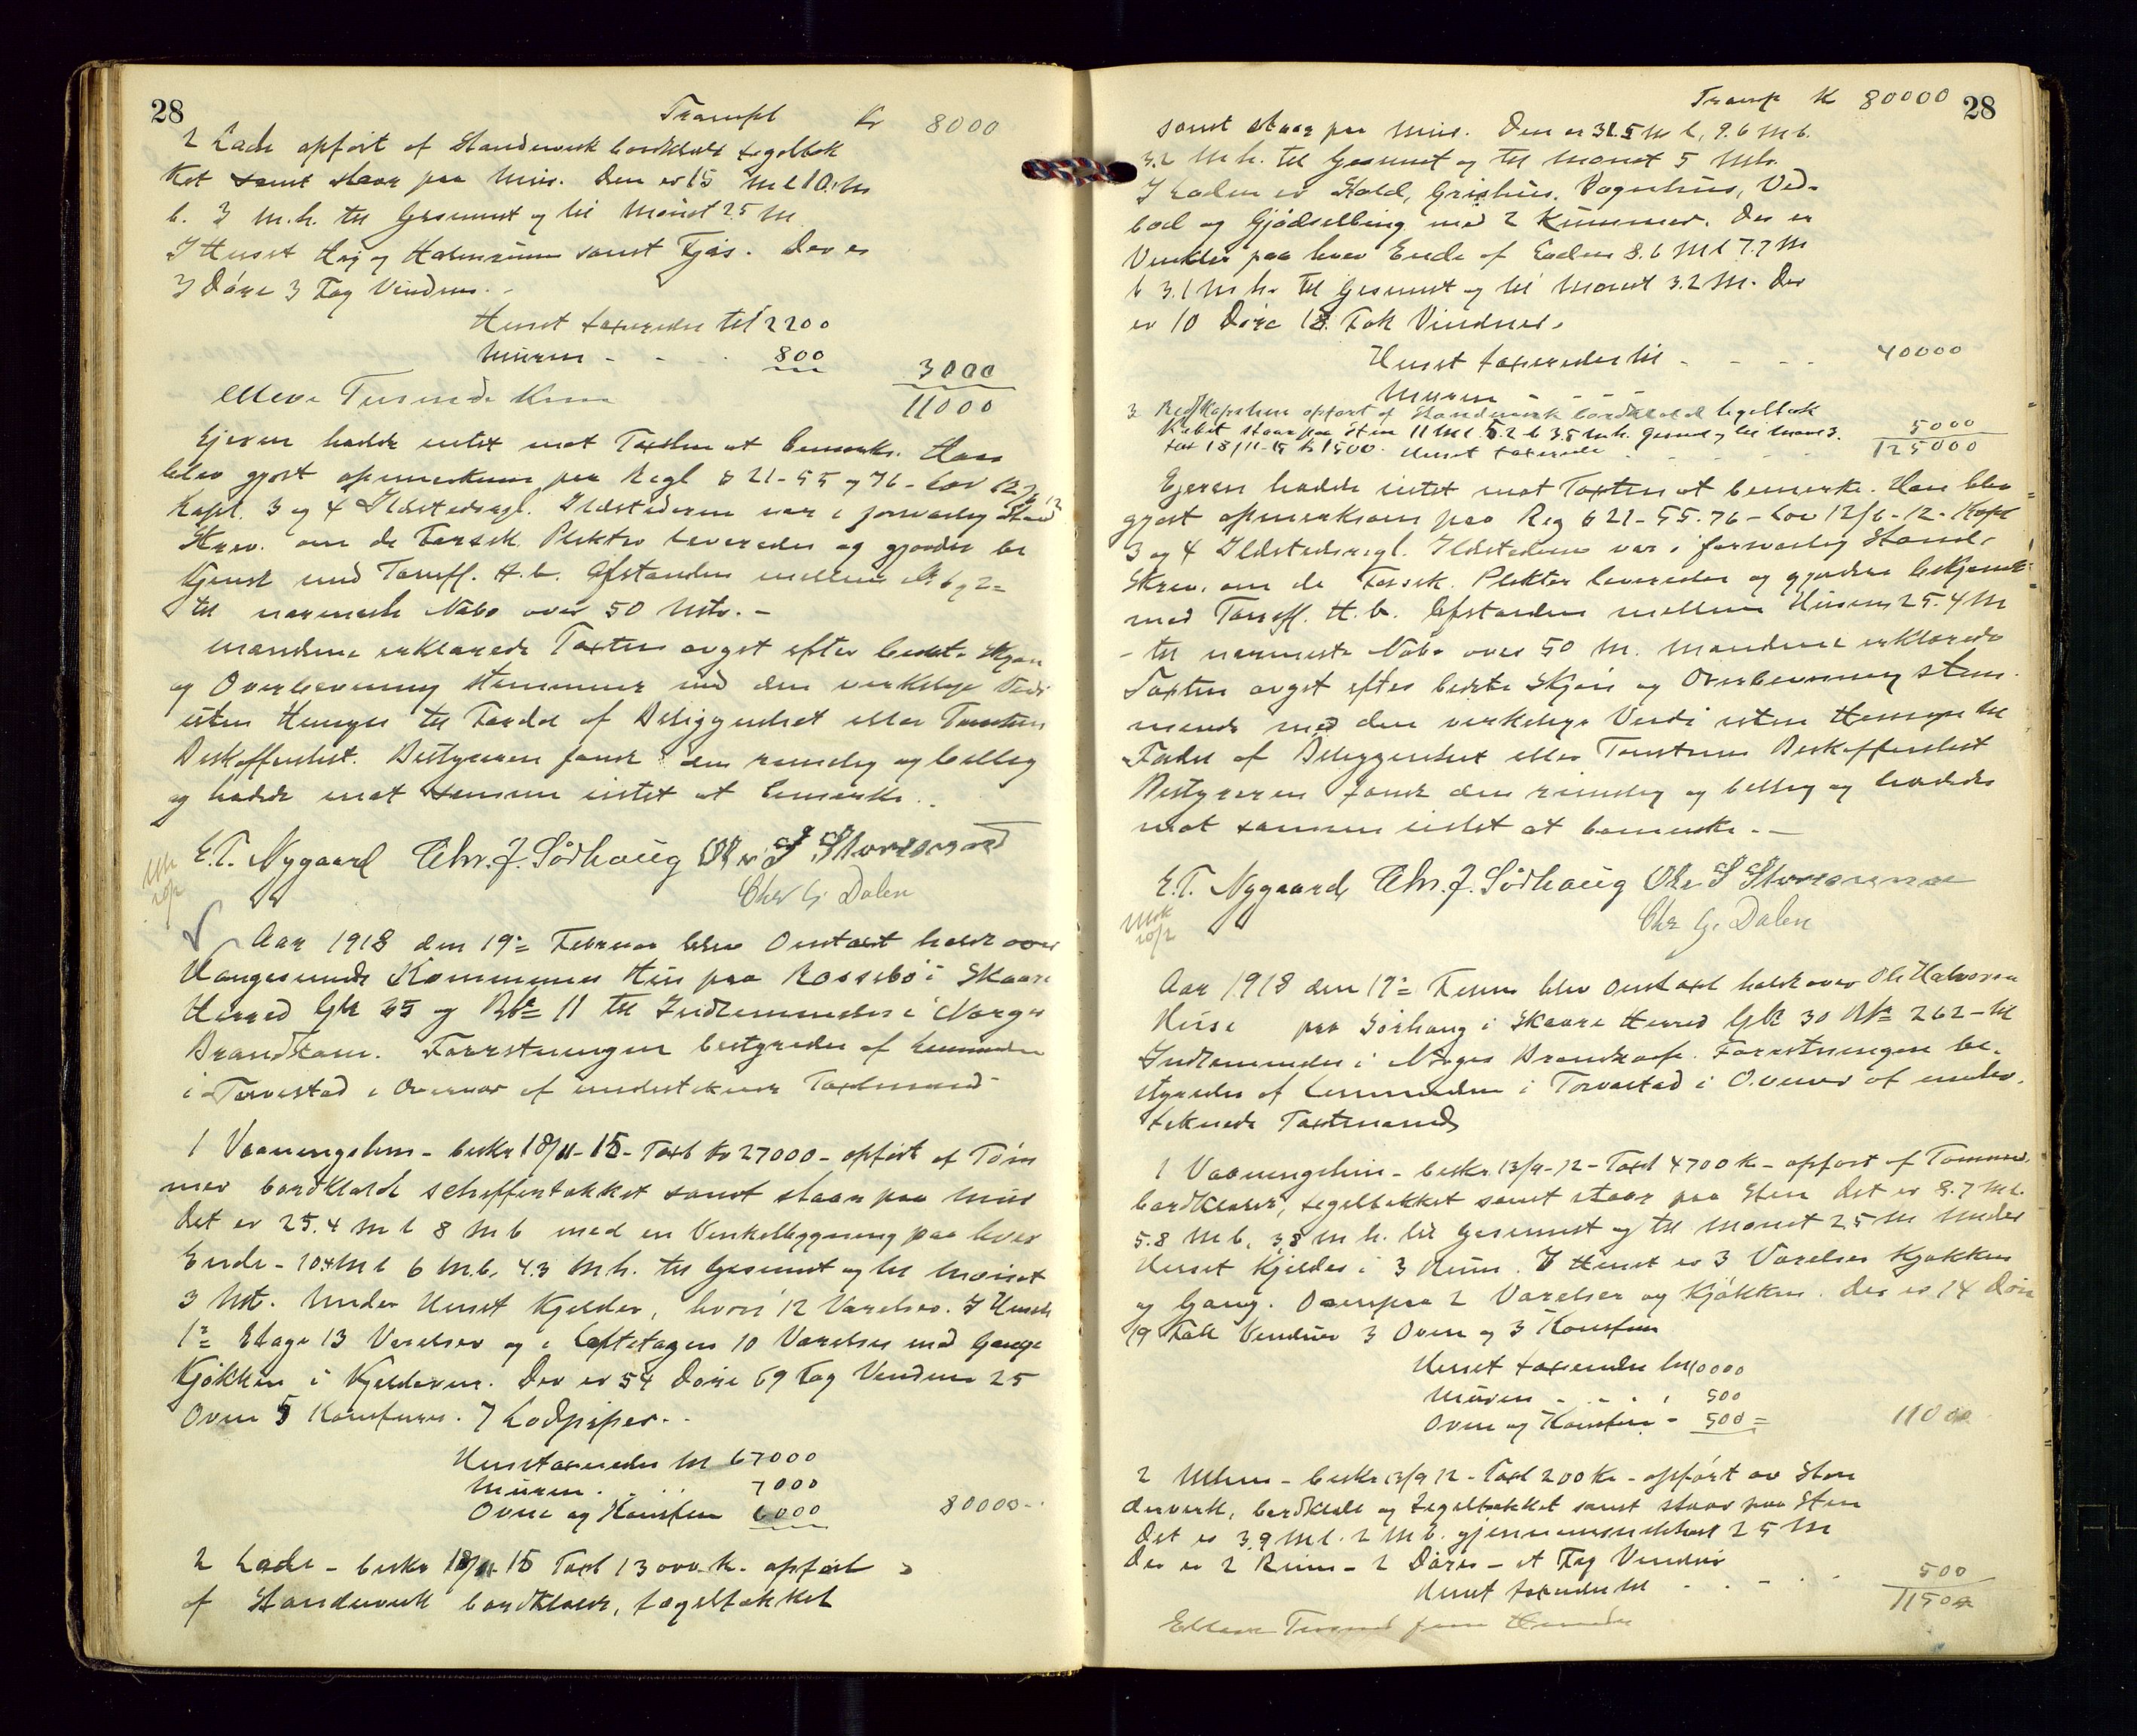 28
Transpt Kr 8000
2 Lade opført af Standerverk bordklædt tegeltæk
ket samt staar paa Mur. Den er 15 M l 10. M
b. 3 M.h. til Gesimset og til Mønet 2.5 M
I Huset Høj og Halmrum samt Fjøs. Der er
3 Døre 3 Fag Vinduer. -
Huset taxeredes til 2200
Muren - - - 800 3000
Elleve Tusinde Kroner 11000
Ejeren hadde intet mot Taxten at bemerke. Han
blev gjort opmerksom paa Regl § 21-55 og 76 - Lov 12/6 12
Kapt. 3 og 4 Ildstedsregl. Ildstederne var i forsvarlig Stand
Skrev. om de Forsik. Plikter leveredes og gjordes be
kjendt med Tariff. H.b. Afstanden mellem № 1 og 2 =
til nærmeste Nabo over 50 Mtr. -
Mændene erklærede Taxten avgit efter bedste Skjøn
og Overbevisning stemmende med den verkelige Verdi
uten Hensyn til Fordel af Beliggenhet eller Tomtens
Beskaffenhet. Bestyreren fandt den rimelig og billig
og hadde mot samme intet at bemerke. .
E.T. Nygaard Chr. J. Sørhaug Ole S Storesund
Chr G. Dalen
Aar 1918 den 19de Februar blev Omtaxt holdt over
Haugesunds Kommunes Hus paa Rossebø i Skaare
Herred Gbr 35 og Br 11 til Indlemmelse i Norges
Brandkasse. Forretningen bestyredes af Lensmanden
i Torvestad i Overvær af undertegnede Taxtmænd -
1 Vaaningshus - beskr 18/11-15 - Taxt Kr 27000 - opført af Tøm
mer bordklædt scheffertækket samt staar paa Mur
Det er 25.4 M l 8 M b med en Venkelbygning paa hver
Ende - 10.4 M l 6 M.b. 4.3 M.h. til Gesimset og til Mønet
3 Mt. Under Huset Kjelder, hvori 12 Værelser. I Husets
1ste Etage 13 Værelser og i Loftetagen 10 Værelser med Gange
Kjøkken i Kjelderen. Der er 54 Døre 69 Fag Venduer 25
Ovne 5 Komfurer. 7 Lodpiper. -
Huset taxeredes til 67000
Muren . . . 7000
Ovne og Komfur 6000 80000 -
2 Lade - beskr 18/11-15 Taxt 13000 K. opført
af Standerverk bordklædt, tegeltækket
28
Transp K 80000
samt staar paa Mur. Den er 31.5 M l, 9.6 M b.
3.2 M.h. til Gesimset og til Mønet 5 Mh.
I Laden er Stald, Grishus, Vognhus, Ved-
bod og Gjødselbing med 2 Kummer. Der er
Venkler paa hver Ende af Laden 8.6 M l 7.7 M
b 3.1 M h. til Gesimset og til Mønet 3.2 M. Der
er 10 Døre 18 Fak Vinduer.
Huset taxeredes til - - - - 40000
Muren - - -
3 Redskapshus opført af Standerverk bordklædt tegeltæk
ket staar paa Sten 11 M l 5.2 b 3.5 M.h. Gesims og til Mønet 3.
tax 18/11-15 K 1500. Huset taxeredes - - - 5000
125000
Ejeren hadde intet mot Taxten at bemerke. Han blev
gjort opmerksom paa Reg § 21-55.76 - Lov 12/6-12. Kapt
3 og 4 Ildstedsregl. Ildstederne var i forsvarlig Stand.
Skrev. om de Forsik. Plikter leveredes og gjordes bekjendt
med Tariff. H.b. Afstanden mellem Husene 25.4 M
- til nærmeste Nabo over 50 M. Mændene erklærede
Taxten avgit efter bedste Skjøn og Overbevisning stem-
mende med den verkelige Verdi uten Hensyn til
Fordel af Beliggenhet eller Tomtens Beskaffenhet
Bestyreren fandt den rimelig og billig og hadde
mot samme intet at bemerke. -
E.T. Nygaard Chr. J. Sørhaug Ole S Storesund
Chr G. Dalen
Aar 1918 den 19de Febru blev Omtaxt holdt over Ole Halvorsen
Huse paa Sørhaug i Skaare Herred Gbr 30 Br 262 - til
Indlemmelse i Norges Brandkasse. Forretningen be-
styredes af Lensmanden i Torvastad i Overvær af under-
teknede Taxtmænd
1 Vaaningshus - beskr 13/9-12 - Taxt 4700 K - opført af Tømmer.
bordklædt, tegeltækket samt staar paa Sten Det er 8.7 M l.
5.8 M b. 3.8 M h. til Gesimset og til Mønet 2.5 M Under
Huset Kjelder i 3 Rum. I Huset er 3 Værelser Kjøkken
og Gang. Ovenpaa 2 Værelser og Kjøkken. Der er 14 Døre
19 Fak Venduer 3 Ovne og 3 Komfur
Huset taxeredes til 10000
Muren - . . . 500
Ovne og Komfur - 500 = 11000
2 Uthus - beskr 13/9 12 - Taxt 200 Kr - opført av Stan
derverk, bordklædt og tegeltækket samt staar paa Sten
Det er 3.9 M l. 2 M b. gjennemsnitshøit 2.5 M
Der er 2 Rum - 2 Døre - et Fag Venduer
Huset taxeredes til - - - 500
11500
Elleve Tusind fem Hundre